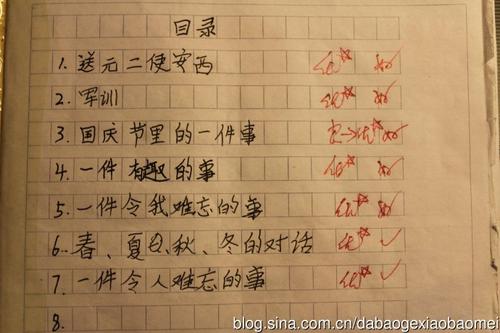 目录
1. 送元二使安西 优☆
2. 军训 优☆
3. 国庆节里的一件事 →优☆
4. 一件有趣的事 优☆
5. 一件令我难忘的事 优☆
6. 春、夏、秋、冬的对话 优☆ ✓
7. 一件令人难忘的事 优☆ ✓
8.
blog.sina.com.cn/dabaogexiaobaomei